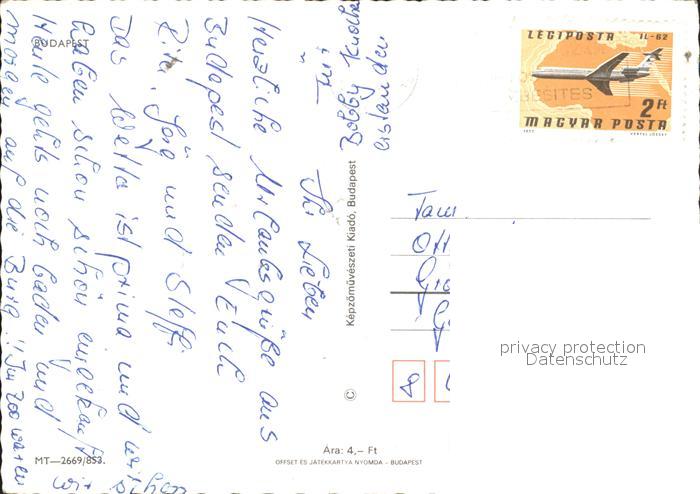 BUDAPEST
Ihr Lieben
Herzliche Urlaubsgrüße aus
Budapest senden Euch
Rita, Jörg und Steffi.
Das Wetter ist prima und wir
haben schon schön eingekauft.
Heute gehts noch baden und
morgen auf die Burg! Im Zoo waren
wir schon
für
Bobby
Képzőművészeti Kiadó, Budapest
©
LÉGIPOSTA IL-62
2 Ft
MAGYAR POSTA
1977 VERTEL JÓZSEF
Fam.
Ott
8
privacy protection
Datenschutz
MT—2669/853.
Ára: 4,– Ft
OFFSET ÉS JÁTÉKKÁRTYA NYOMDA – BUDAPEST